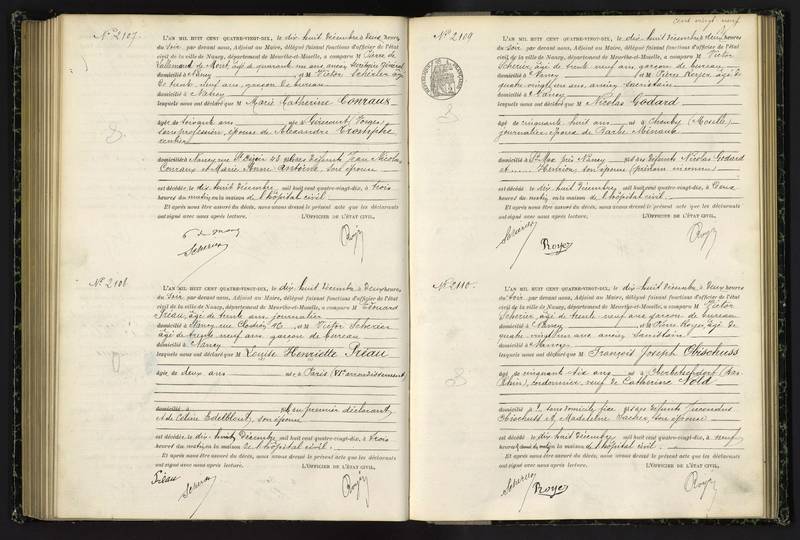 Nº 2107.
L'AN MIL HUIT CENT QUATRE-VINGT-DIX, le dix huit Décembre à Deux heures
du soir, par devant nous, Adjoint au Maire, délégué faisant fonctions d'officier de l'état
civil de la ville de Nancy, département de Meurthe-et-Moselle, a comparu M Pierre de
âgé de quarante un ans, ancien Secrétaire Général
domicilié à Nancy, et M Victor Scherier âgé
de trente neuf ans, garçon de bureau
domicilié à Nancy
lesquels nous ont déclaré que M Marie Catherine Conraux
agée de soixante ans née à Girecourt, Vosges,
sans profession, épouse de Alexandre
rentier
domiciliée à Nancy rue St Dizier 43 et des défunts Jean Nicolas
Conraux et Marie Anne Antoine, son épouse
est décédée, le dix huit Décembre, mil huit cent quatre-vingt-dix, à trois
heures du matin en la maison de l'hôpital civil.
Et après nous être assuré du décès, nous avons dressé le présent acte que les déclarants
ont signé avec nous après lecture. L'OFFICIER DE L'ÉTAT CIVIL,
Scherier
Nº 2108
L'AN MIL HUIT CENT QUATRE-VINGT-DIX, le dix huit Décembre à Deux heures,
du soir, par devant nous, Adjoint au Maire, délégué faisant fonctions d'officier de l'état
civil de la ville de Nancy, département de Meurthe-et-Moselle, a comparu M Edouard
Préau, âgé de trente ans, journalier
domicilié à Nancy, rue Clodion, et M Victor Scherier
âgé de trente neuf ans, garçon de bureau
domicilié à Nancy
lesquels nous ont déclaré que M Louise Henriette Préau
agée de deux ans née à Paris (VIe arrondissement)
domiciliée à du premier déclarant,
et de Celine Edelblout, son épouse
est décédée, le dix huit Décembre, mil huit cent quatre-vingt-dix, à trois
heures du matin, en la maison de l'hôpital civil.
Et après nous être assuré du décès, nous avons dressé le présent acte que les déclarants
ont signé avec nous après lecture. L'OFFICIER DE L'ÉTAT CIVIL,
Préau Scherier
cent vingt neuf
Nº 2109
L'AN MIL HUIT CENT QUATRE-VINGT-DIX, le dix huit Décembre à deux heures
du soir par devant nous, Adjoint au Maire, délégué faisant fonctions d'officier de l'état
civil de la ville de Nancy, département de Meurthe-et-Moselle, a comparu M Victor
Scherier, âgé de trente neuf ans garçon de bureau
domicilié à Nancy et M Pierre Royer, âgé de
quatre vingt un ans, ancien sacristain
domicilié à Nancy
lesquels nous ont déclaré que M Nicolas Godard
agé de cinquante ans né à (Moselle)
journalier époux de Barbe
domicilié à St Max près Nancy et des défunts Nicolas Godard
et Henrion, son épouse (prénom inconnu)
est décédé, le dix huit Décembre, mil huit cent quatre-vingt-dix, à Deux
heures du matin en la maison de l'hôpital civil.
Et après nous être assuré du décès, nous avons dressé le présent acte que les déclarants
ont signé avec nous après lecture. L'OFFICIER DE L'ÉTAT CIVIL,
Scherier Royer
Nº 2110.
L'AN MIL HUIT CENT QUATRE-VINGT-DIX, le dix huit Décembre à Deux heures
du soir. par devant nous, Adjoint au Maire, délégué faisant fonctions d'officier de l'état
civil de la ville de Nancy, département de Meurthe-et-Moselle, a comparu M Victor
Scherier, âgé de trente neuf ans garçon de bureau
domicilié à Nancy et M Pierre Royer, âgé de
quatre vingt un ans, ancien sacristain
domicilié à Nancy
lesquels nous ont déclaré que M François Joseph Obischuss
agé de cinquante six ans né à (Bas-
Rhin), cordonnier, veuf de Catherine Nold
domicilié à sans domicile fixe et des défunts
Obischuss et Madeleine son épouse
est décédé, le dix huit Décembre mil huit cent quatre-vingt-dix, à neuf
heures du matin en la maison de l'hôpital civil.
Et après nous être assuré du décès, nous avons dressé le présent acte que les déclarants
ont signé avec nous après lecture. L'OFFICIER DE L'ÉTAT CIVIL,
Scherier Royer